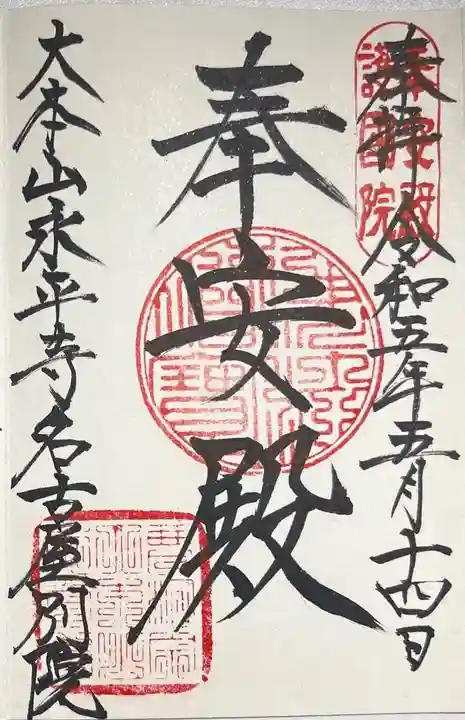 奉拝 令和五年五月十四日
奉安殿
護国院
大本山永平寺名古屋別院